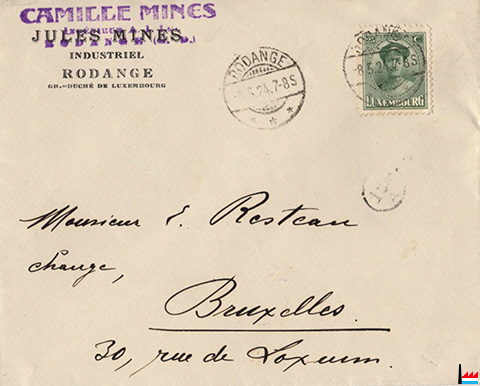 CAMILLE MINES
JULES MINES
INDUSTRIEL
RODANGE
GR.-DUCHÉ DE LUXEMBOURG
RODANGE
-8.5.24.7-8S
RODANGE
-8.5.24.7-8S
LUXEMBOURG
Monsieur E. Resteau
change,
Bruxelles.
30, rue de Loxum.